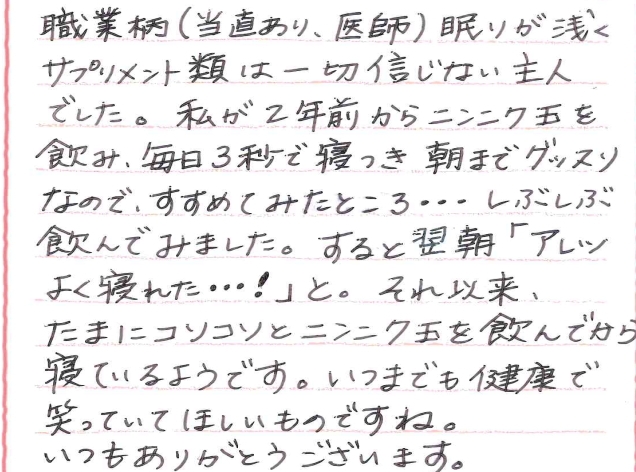 職業柄(当直あり、医師)眠りが浅く
サプリメント類は一切信じない主人
でした。私が2年前からニンニク玉を
飲み、毎日3秒で寝つき朝までグッスリ
なので、すすめてみたところ・・・しぶしぶ
飲んでみました。すると翌朝「アレッ
よく寝れた・・・!」と。それ以来、
たまにコソコソとニンニク玉を飲んでから
寝ているようです。いつまでも健康で
笑っていてほしいものですね。
いつもありがとうございます。